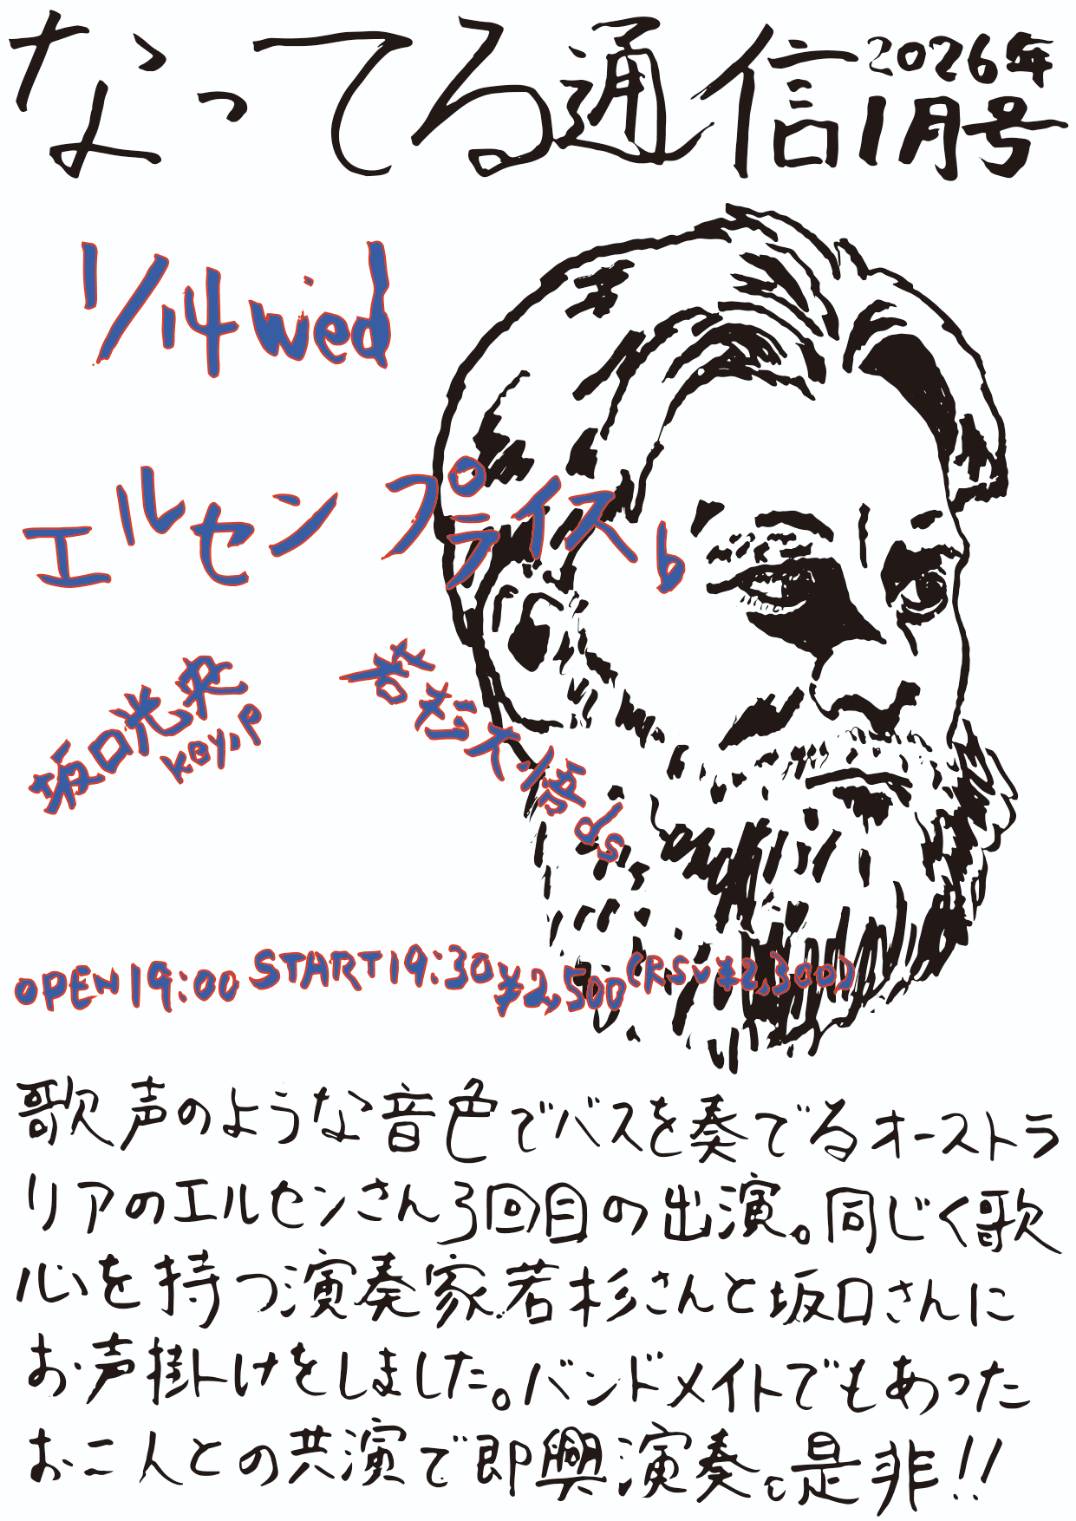 なってる通信 2026年
1月号
1/14 wed
エルセン プライス b
坂口光央
key, p
若杉大悟 ds
OPEN 19:00 START 19:30 ¥2,500 (RSV ¥2,300)
歌声のような音色でバスを奏でるオーストラ
リアのエルセンさん3回目の出演。同じく歌
心を持つ演奏家若杉さんと坂口さんに
お声掛けをしました。バンドメイトでもあった
お二人との共演で即興演奏。是非!!